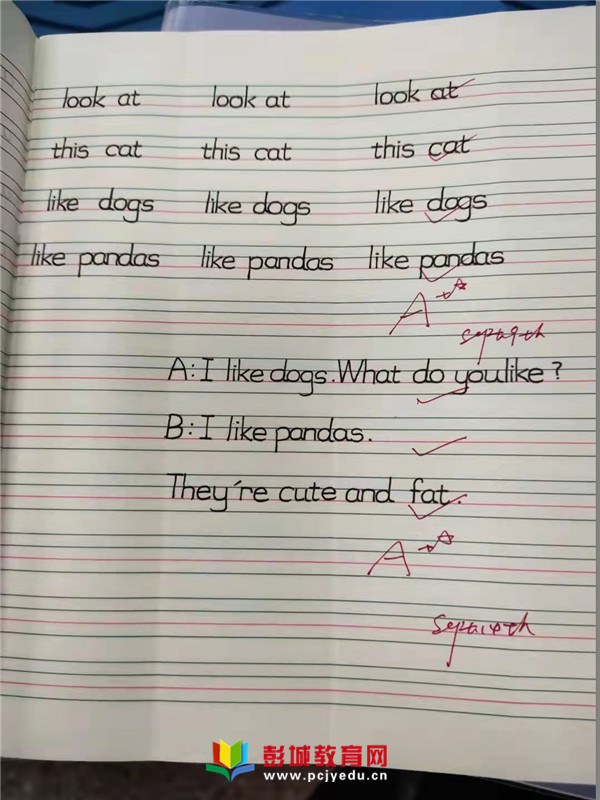 look at look at look at
this cat this cat this cat
like dogs like dogs like dogs
like pandas like pandas like pandas
A
A: I like dogs. What do youlike?
B: I like pandas.
They're cute and fat.
A
彭城教育网
www.pcjyedu.cn